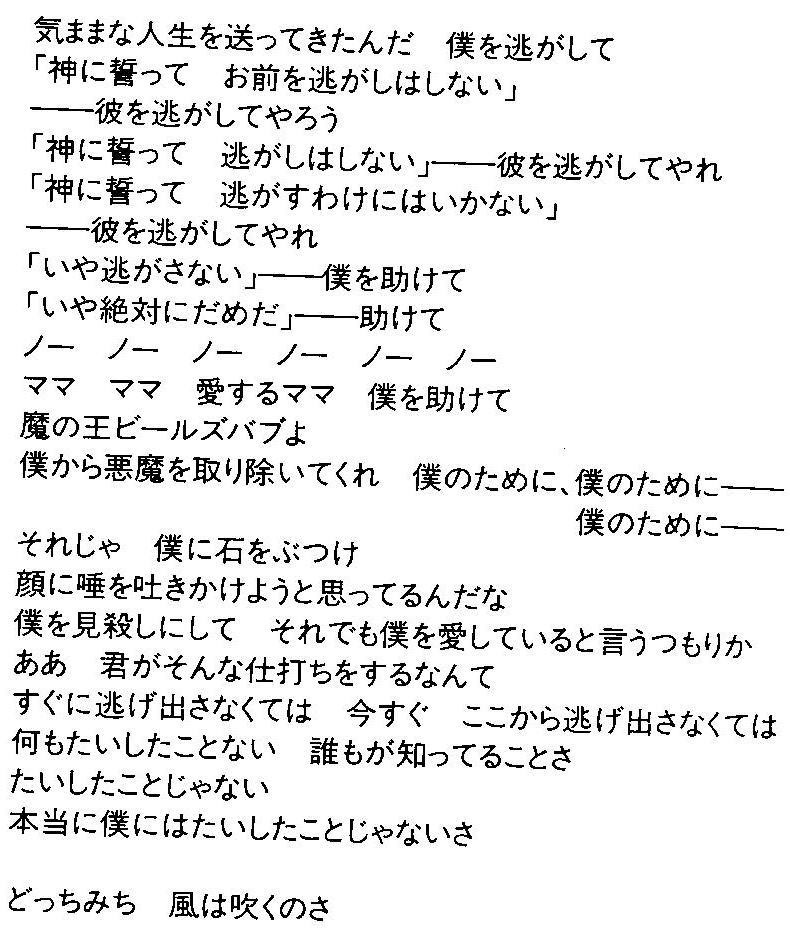 気ままな人生を送ってきたんだ　僕を逃がして
「神に誓って　お前を逃がしはしない」
――彼を逃がしてやろう
「神に誓って　逃がしはしない」――彼を逃がしてやれ
「神に誓って　逃がすわけにはいかない」
――彼を逃がしてやれ
「いや逃がさない」――僕を助けて
「いや絶対にだめだ」――助けて
ノー　ノー　ノー　ノー　ノー　ノー
ママ　ママ　愛するママ　僕を助けて
魔の王ビールズバブよ
僕から悪魔を取り除いてくれ　僕のために、僕のために――
僕のために――
それじゃ　僕に石をぶつけ
顔に唾を吐きかけようと思ってるんだな
僕を見殺しにして　それでも僕を愛していると言うつもりか
ああ　君がそんな仕打ちをするなんて
すぐに逃げ出さなくては　今すぐ　ここから逃げ出さなくては
何もたいしたことない　誰もが知ってることさ
たいしたことじゃない
本当に僕にはたいしたことじゃないさ
どっちみち　風は吹くのさ